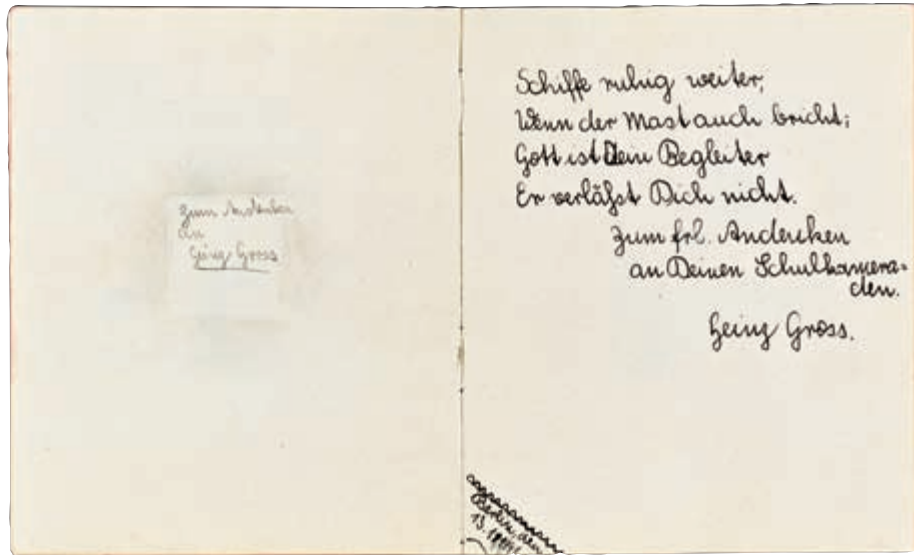 Zum Andenken
an
Heinz Gross
Schiffe ruhig weiter,
Wenn der Mast auch bricht;
Gott ist Dein Begleiter
Er verläßt Dich nicht.
Zum frl. Andencken
an Deinen Schulkamera-
den.
Heinz Gross.
Berlin, den
13.